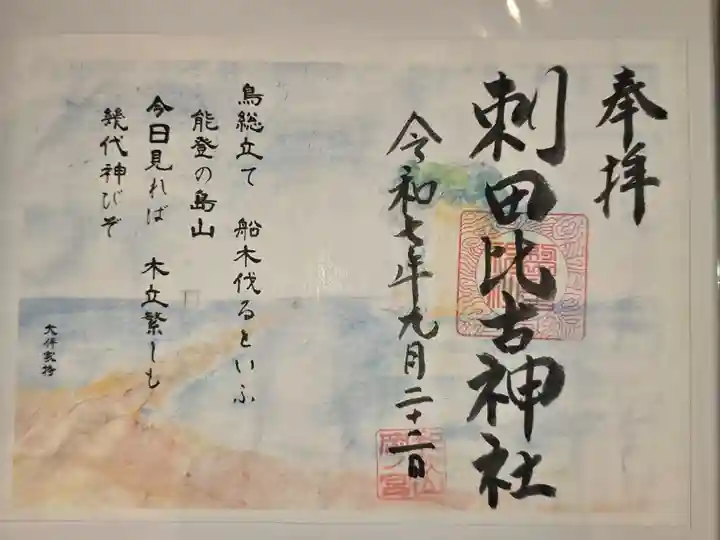 奉拝
刺田比古神社
令和七年九月二十二日
鳥総立て 船木伐るといふ
能登の島山
今日見れば 木立繁しも
幾代神びぞ
大伴家持